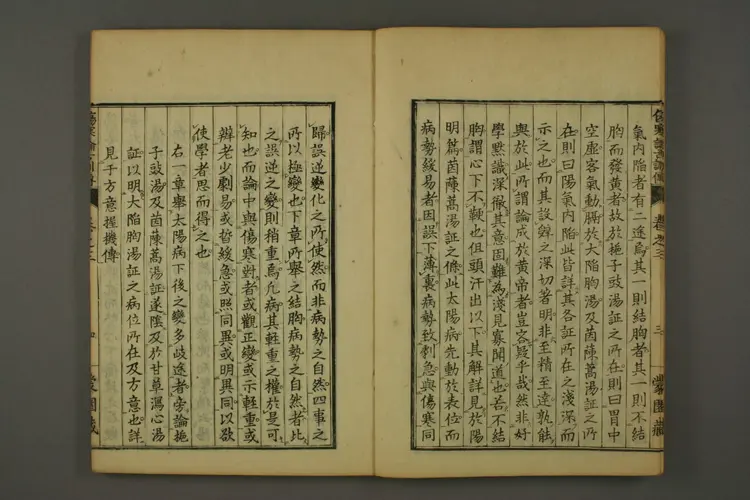 氣內陷者有二途焉其一則結胸者其一則不結
胸而發黃者故於梔子豉湯証之所在則曰胃中
空虛客氣動膈於大陷胸湯及茵蔯蒿湯証之所
在則曰陽氣內陷此皆詳其各証所在之淺深而
示之也而其設辭之深切著明非至精至達孰能
與於此所謂論成於黃帝者豈容疑乎哉然非好
學黙識深徹其意固難為淺見寡聞道也若不結
胸謂心下不鞕也但頭汗出以下其解詳見於陽
明篇茵蔯蒿湯証之條此太陽病先動於表位而
病勢緩易者因誤下薄裏病勢致劇急與傷寒同
歸誤逆變化之所使然而非病勢之自然四事之
所以極變也下章所舉之結胸病勢之自然者比
之誤逆之變則稍重焉凡病其輕重之權於是可
知也而論中與傷寒對者或觀正變或示輕重或
辨老少劇易或晢緩急或照同異或明異同以欲
使學者思而得之也
右一章舉太陽病下後之變多岐途者旁論梔
子豉湯及茵蔯蒿湯証遂隲及於甘草瀉心湯
証以明大陷胸湯証之病位所在及方意也詳
見于方意握機傳